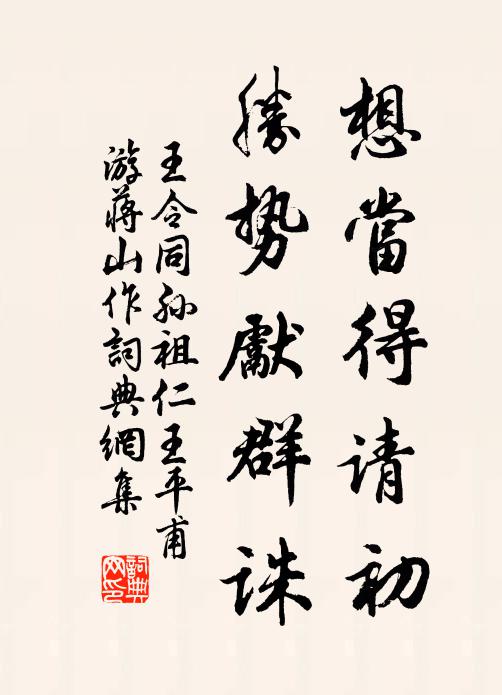 想當得请初
勝势獻群誅
王令同孙祖仁王平甫
游蔣山作詞典網集
詞典网印